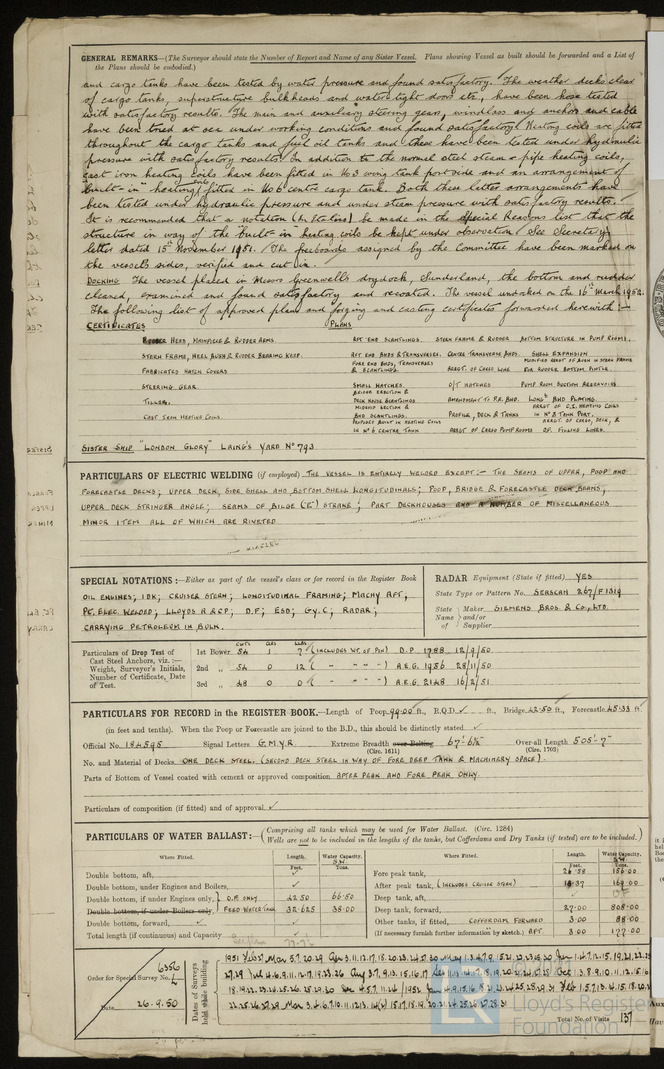 GENERAL REMARKS—(The Surveyor should state the Number of Report and Name of any Sister Vessel. Plans showing Vessel as built should be forwarded and a List of
the Plans should be embodied.)
and cargo tanks have been tested by water pressure and found satisfactory. The weather decks clear
of cargo tanks, superstructure bulkheads and watertight doors etc., have been hose tested
with satisfactory results. The main and auxiliary steering gears, windlass and anchors and cable
have been tried at sea under working conditions and found satisfactory. Heating coils are fitted
throughout the cargo tanks and fuel oil tanks and these have been tested under hydraulic
pressure with satisfactory results. In addition to the normal steel steam pipe heating coils,
cast iron heating coils have been fitted in No 3 wing tank port side and an arrangement of
"built-in" heating coils fitted in No 6 centre cargo tank. Both these latter arrangements have
been tested under hydraulic pressure and under steam pressure with satisfactory results.
It is recommended that a notation be made in the Special Reasons list that the
structure in way of the "built-in" heating coils be kept under observation. See Secretary's
letter dated 15th November 1951. The freeboards assigned by the Committee have been marked on
the vessel's sides, verified and cut in.
DOCKING The vessel placed in Messrs Greenwell's drydock, Sunderland, the bottom and rudder
cleaned, examined and found satisfactory and recoated. The vessel undocked on the 16th March 1952.
The following list of approved plans and forging and casting certificates forwarded herewith:—
CERTIFICATES PLANS
RUDDER HEAD, MAINPIECE & RUDDER ARMS. AFT END SCANTLINGS. STERN FRAME & RUDDER BOTTOM STRUCTURE IN PUMP ROOMS.
STERN FRAME, HEEL BUSH & RUDDER BEARING KEEP. AFT END BHDS & TRANSVERSES. CENTRE TRANSVERSE BHDS. SHELL EXPANSION
FORE END BHDS, TRANSVERSES MODIFIED ARRGT OF BUSH IN STERN FRAME
FABRICATED HATCH COVERS & SCANTLINGS. ARRGT. OF CARGO LINE FOR RUDDER BOTTOM PINTLE.
STEERING GEAR. SMALL HATCHES. O/T HATCHES PUMP ROOM SUCTION
BRIDGE ERECTION &
TILLER. DECK HOUSE SCANTLINGS AMENDMENT TO P.R. BHD. LONGL BHD PLATING.
MIDSHIP SECTION & ARRGT OF C.I. HEATING COILS
CAST IRON HEATING COILS. BHD SCANTLINGS. PROFILE, DECK & TANKS IN No 3 TANK PORT.
PROPOSED BUILT IN HEATING COILS ARRGT. OF CARGO, DECK, &
IN No 6 CENTRE TANK ARRGT OF CARGO PUMP ROOMS OF FILLING LINES.
SISTER SHIP "LONDON GLORY" LAING'S YARD No 793
PARTICULARS OF ELECTRIC WELDING (if employed) THE VESSEL IS ENTIRELY WELDED EXCEPT:— THE SEAMS OF UPPER, POOP AND
FORECASTLE DECKS; UPPER DECK, SIDE SHELL AND BOTTOM SHELL LONGITUDINALS; POOP, BRIDGE & FORECASTLE DECK BEAMS,
UPPER DECK STRINGER ANGLE; SEAMS OF BILGE ("E") STRAKE; PART DECKHOUSES AND A NUMBER OF MISCELLANEOUS
MINOR ITEM ALL OF WHICH ARE RIVETED
SPECIAL NOTATIONS:—Either as part of the vessel's class or for record in the Register Book
OIL ENGINES; 1 DK; CRUISER STERN; LONGITUDINAL FRAMING; MACHY AFT,
PT. ELEC WELDED; LLOYDS A & CP; D.F; ESD; GY.C; RADAR;
CARRYING PETROLEUM IN BULK.
RADAR Equipment (State if fitted) YES
State Type or Pattern No. SEASCAN 267/F 1319
State Name of Maker and/or Supplier SIEMENS BROS. & Co., LTD.
Particulars of Drop Test of Cast Steel Anchors, viz.:— Weight, Surveyor's Initials, Number of Certificate, Date of Test.
CWTS QRS LBS
1st Bower 54 1 7 (INCLUDES WT. OF PIN) D.P 1788 12/9/50
2nd „ 54 0 12 ( „ „ „ ) A.R.G. 1956 28/11/50
3rd „ 48 0 0 ( „ „ „ ) A.R.G. 2148 16/2/51
PARTICULARS FOR RECORD in the REGISTER BOOK.—Length of Poop 99.00 ft., R.Q.D. ✓ ft., Bridge 42.50 ft., Forecastle 45.33 ft.
(in feet and tenths). When the Poop or Forecastle are joined to the B.D., this should be distinctly stated ✓
Official No. 184595 Signal Letters G.M.Y.R. Extreme Breadth over Belting 67'-6½" Over-all Length 505'-7"
(Circ. 1611) (Circ. 1703)
No. and Material of Decks ONE DECK STEEL. (SECOND DECK STEEL IN WAY OF FORE DEEP TANK & MACHINERY SPACE).
Parts of Bottom of Vessel coated with cement or approved composition AFTER PEAK AND FORE PEAK ONLY.
Particulars of composition (if fitted) and of approval ✓
PARTICULARS OF WATER BALLAST:—(Comprising all tanks which may be used for Water Ballast. (Circ. 1284)
Wells are not to be included in the lengths of the tanks, but Cofferdams and Dry Tanks (if tested) are to be included.)
Where Fitted. Length. Water Capacity. Where Fitted. Length. Water Capacity.
Feet. Tons. Feet. Tons.
Double bottom, aft, ✓ Fore peak tank, 26.58 156.00
Double bottom, under Engines and Boilers, ✓ After peak tank, (INCLUDES CRUISER STERN) 169.00
Double bottom, if under Engines only, O.F. ONLY 42.50 66.50 Deep tank, aft,
Double bottom, if under Boilers only, FEED WATER TANK 32.625 38.00 Deep tank, forward, 27.00 808.00
Double bottom, forward, ✓ Other tanks, if fitted, COFFERDAM FORWARD 3.00 88.00
Total length (if continuous) and Capacity (If necessary furnish further information by sketch.) AFT. 3.00 127.00
Order for Special Survey No. 6356
Date 26.9.50
Dates of Surveys held while building
Total No. of Visits 137
© 2021
LR
Lloyd's Register
Foundation